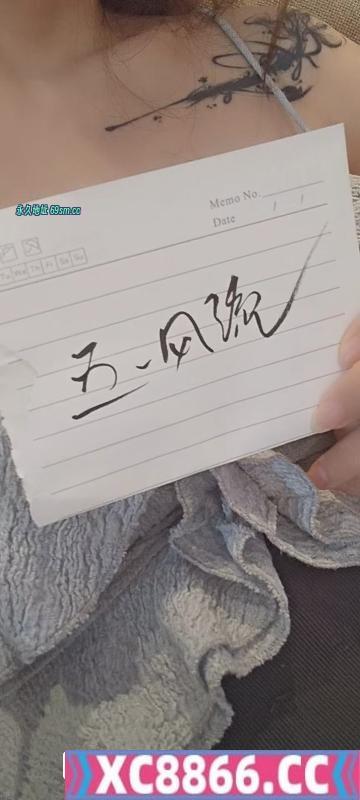 永久地址 69sm.cc
Memo No.
Date / /
Tu We Th Fr Sa Su
五一风流
XC8866.CC